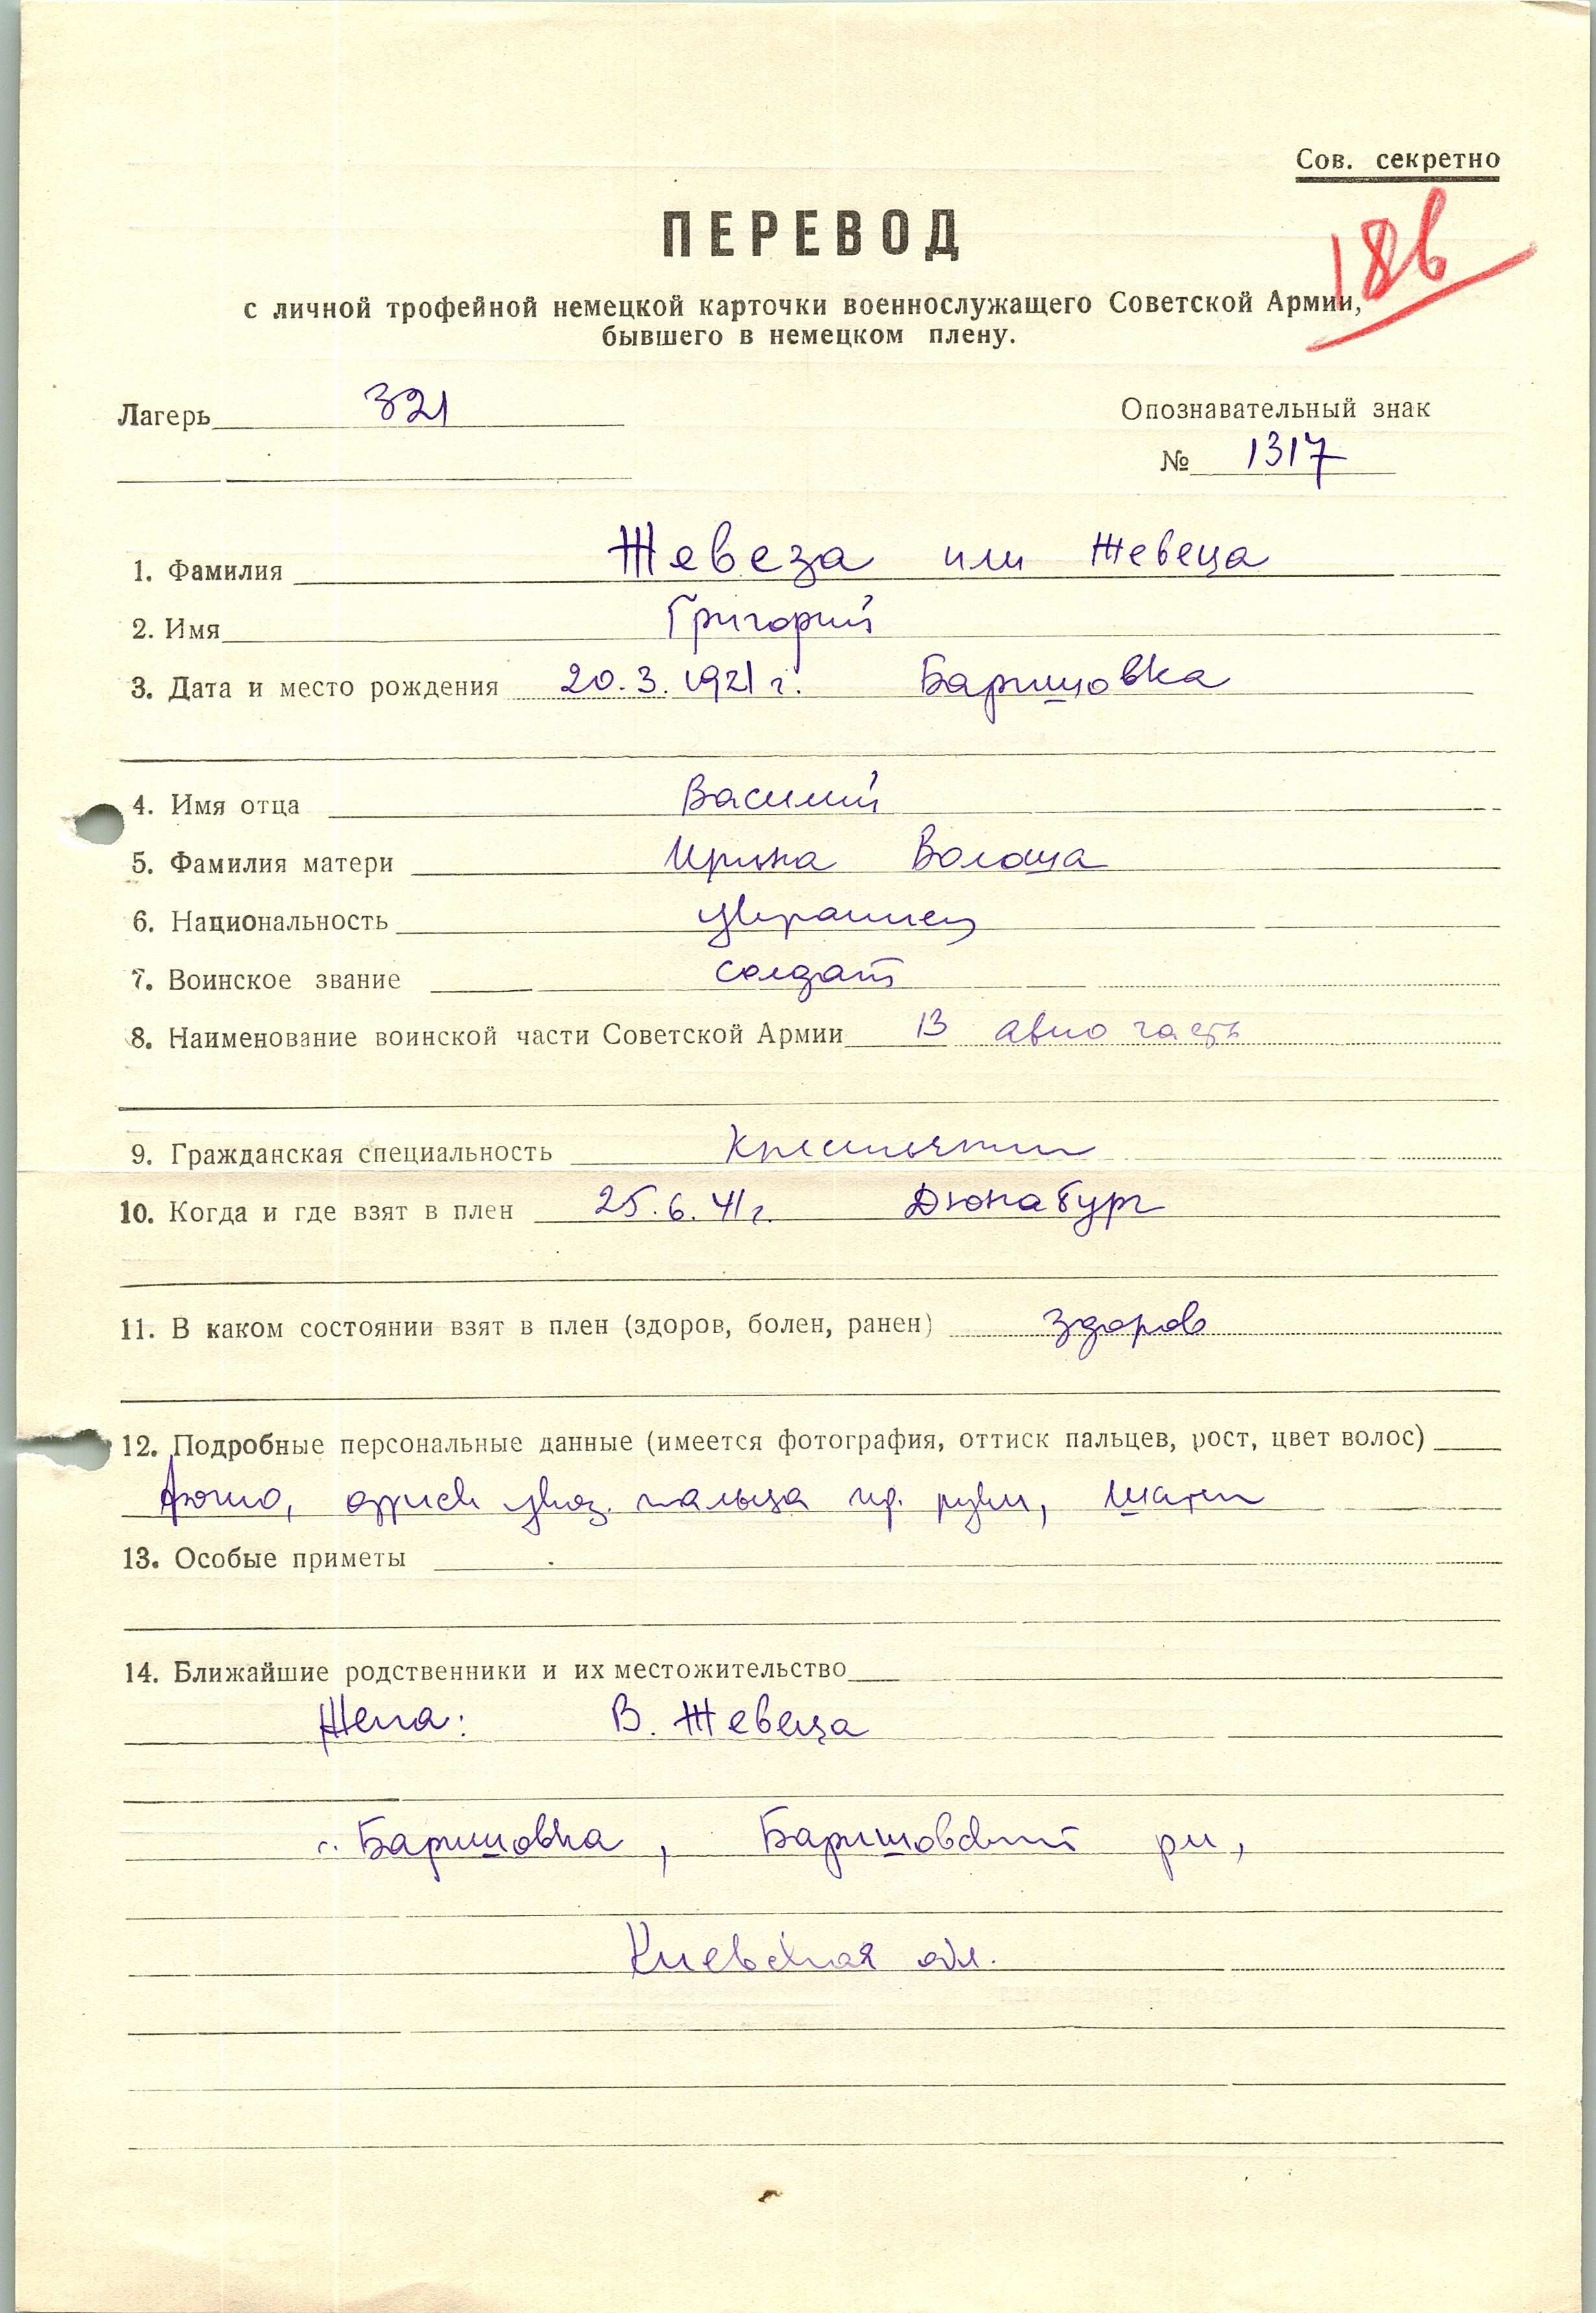 Сов. секретно
ПЕРЕВОД
18б
с личной трофейной немецкой карточки военнослужащего Советской Армии,
бывшего в немецком плену.
Лагерь 321
Опознавательный знак
№ 1317
1. Фамилия Жевеза или Жевеца
2. Имя Григорий
3. Дата и место рождения 20.3.1921 г. Баришовка
4. Имя отца Василий
5. Фамилия матери Ирина Волоша
6. Национальность украинец
7. Воинское звание солдат
8. Наименование воинской части Советской Армии 13 авио часть
9. Гражданская специальность Крестьянин
10. Когда и где взят в плен 25.6.41г. Дюнабург
11. В каком состоянии взят в плен (здоров, болен, ранен) здоров
12. Подробные персональные данные (имеется фотография, оттиск пальцев, рост, цвет волос)
Фото, оттиск указ. пальца пр. руки, шатен
13. Особые приметы
14. Ближайшие родственники и их местожительство
Жена: В. Жевеца
с. Баришовка, Баришовский рн,
Киевская обл.